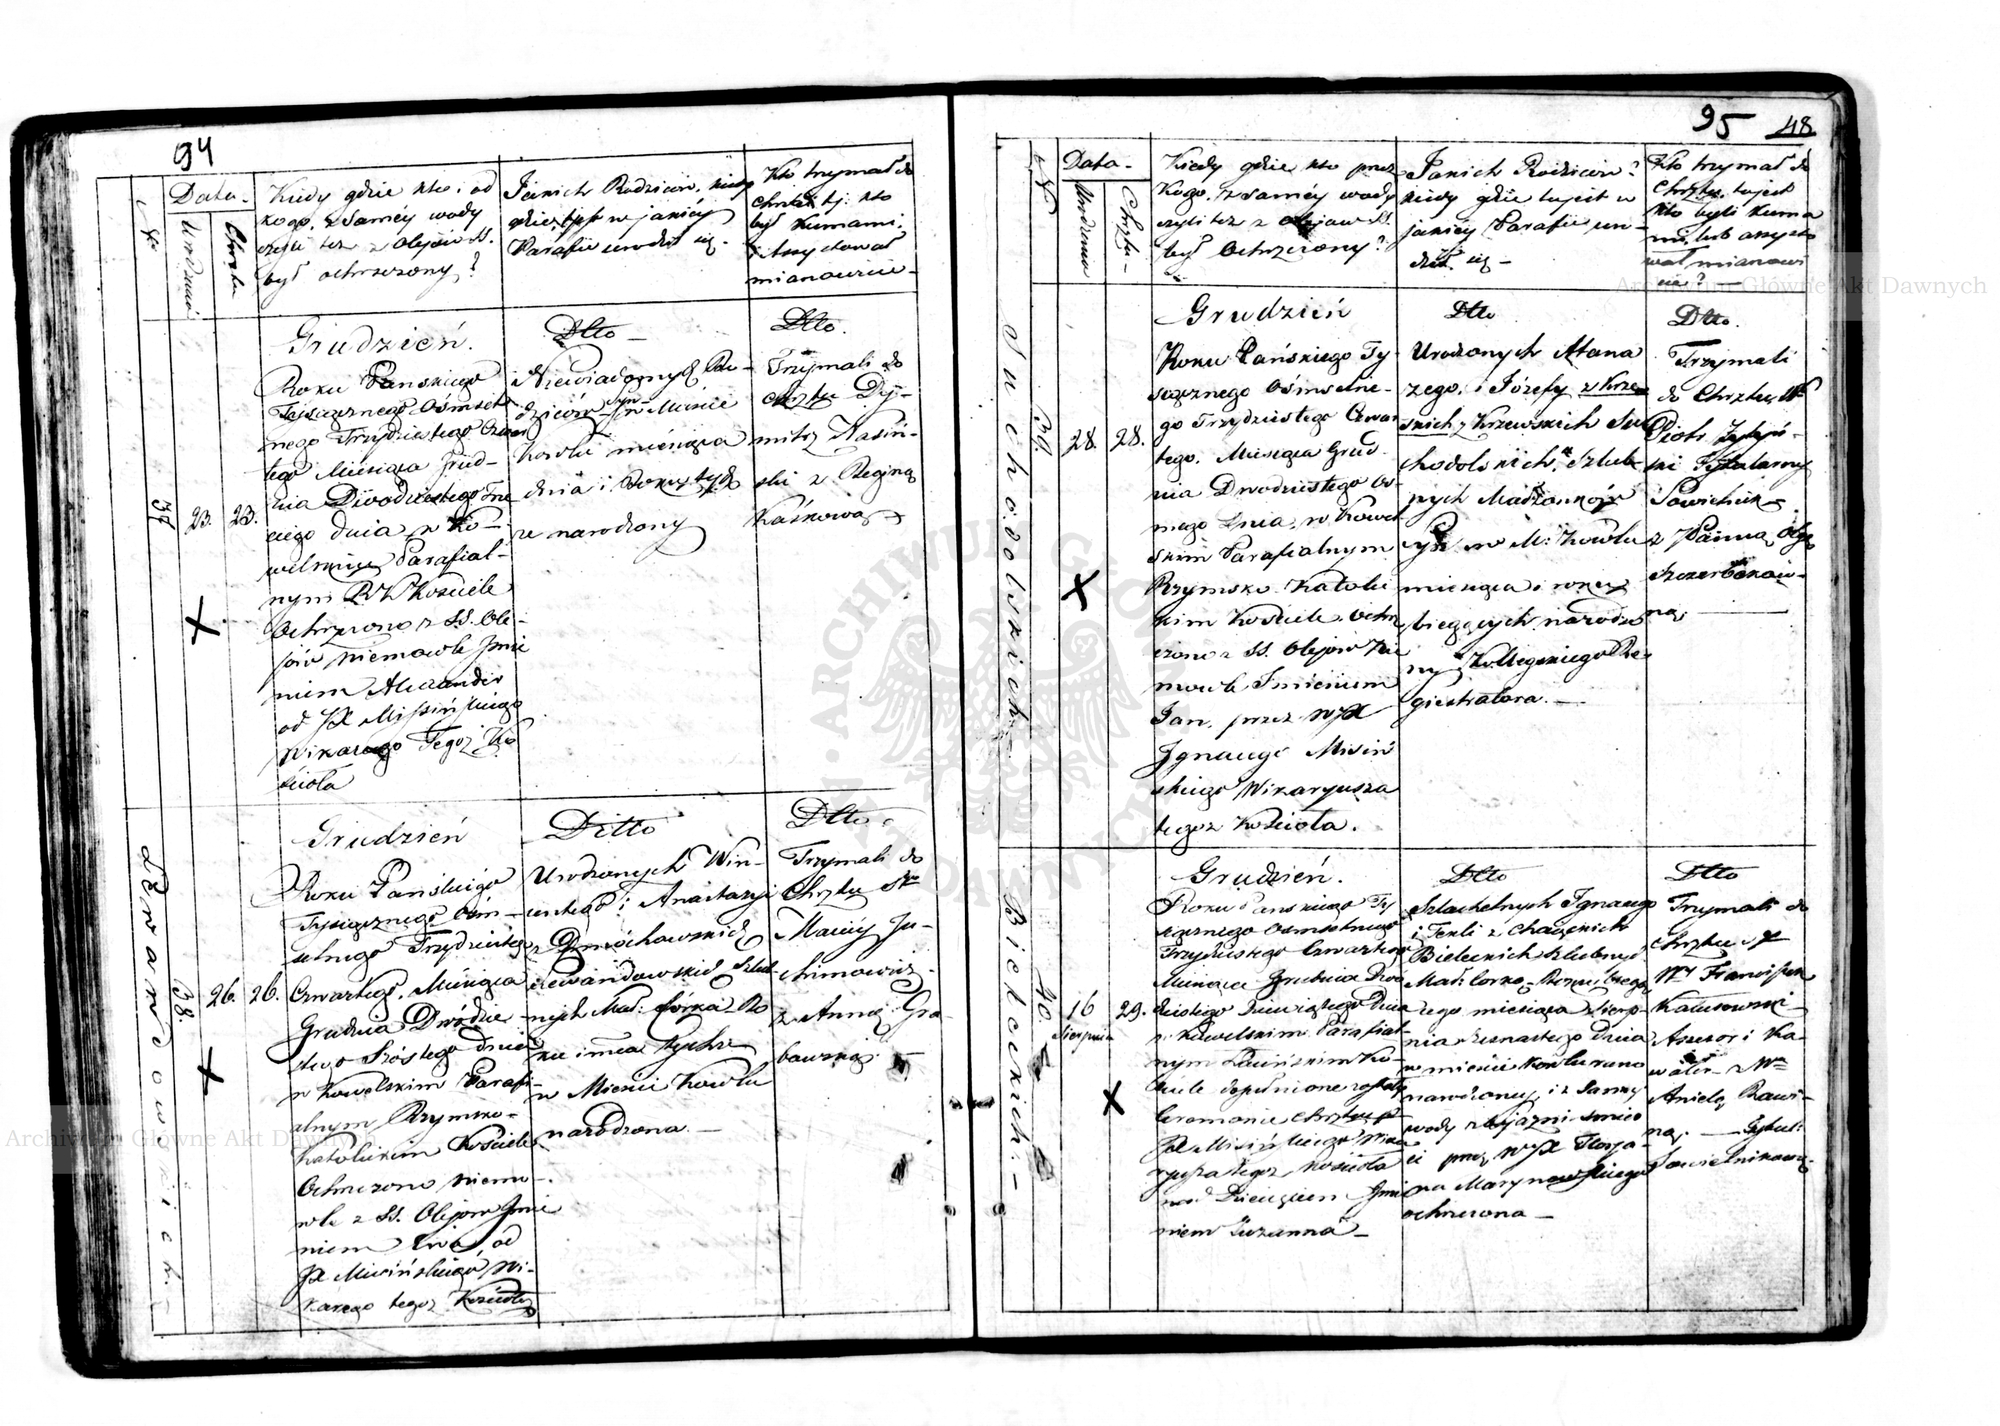 94
No
Data
Urodzenia
Chrztu
Kiedy gdzie kto i od
kogo, z saméy wody
czyli też z Olejów SS.
był ochrzczony?
Jakich Rodziców, kiedy
gdzie, tjest w jakiéy
Parafii urodził się.
Kto trzymał do
chrztu tj: kto
był Kumami,
i Assystował
mianowicie
37
23.
23.
Grudzień.
Roku Pańskiego
Tysiącznego Ośmset
nego Trzydziestego Czwar
tego Miesiąca Grud-
nia Dwódziestego Trze
ciego dnia w Ko-
welskim Parafial-
nym RK Kościele
Ochrzczono z SS. Ole-
jów Niemowle Imie
niem Alexander
od JX Misińskiego
Wikarego Tegoż Ko
ścioła
Dtto
Niewiadomych Ro-
dziców syn w Mieście
Kowlu miesiąca
dnia i Roku tych
że narodzony
Dtto.
Trzymali do
chrztu Dy-
mitry Kasiń-
ski z Reginą
Kaśkową
Lewandowskich.
38.
26.
26.
Grudzień
Roku Pańskiego
Tysiącznego Ośm-
setnego Trzydziestego
Czwartego, Miesiąca
Grudnia Dwódzie-
stego Szóstego dnia
w Kowelskim Parafi-
alnym Rzymsko-
Katolickim Kościele
Ochrzczono niemo-
wle z SS. Olejów Imie
niem Ewa, od
JX Misińskiego Wi-
karego tegoż Kościoła
Ditto
Urodzonych Win-
centego i Anastazyi
z Dmochowskich
Lewandowskich Szlub-
nych Mał: córka Ro
ku i mca tychże
w Mieście Kowlu
narodzona.
Dtto.
Trzymali do
Chrztu
Maciéy Ju-
chimowicz
z Anną Gra-
bowską
95 48
No
Data
Urodzenia
Chrztu
Kiedy gdzie kto przez
Kogo, z saméy wody
czyli też z olejów SS.
był Ochrzczony?
Jakich Rodziców?
kiedy gdzie tojest w
jakiéy Parafii uro-
dził się
Kto trzymał do
Chrztu, tojest
kto byli kuma
mi, lub assysto
wał mianowi
cie?
Suchodolskich
39.
28.
28.
Grudzień
Roku Pańskiego Ty-
sącznego Ośmsetne-
go Trzydziestego Czwar
tego, Miesiąca Grud-
nia Dwodziestego Os-
mego dnia, w Kowel
skim Parafialnym
Rzymsko Katolic
kim Kościele, Ochrz
czono z SS. Olejów Nie
mowle Imieniem
Jan, przez WJX
Ignacego Misiń
skiego Wikaryusza
tegoż Kościoła.
Dtto
Urodzonych Atana
zego i Józefy z Krze
skich z Krzewskich Su
chodolskich, Szlub-
nych Małżonków
syn w M: Kowlu
miesiąca i roku
bieżących narodzo
ny Kollegskiego Re-
giestratora.
Dtto.
Trzymali
do Chrztu W
Piotr
ski Tytularny
Sowietnik
z Panną Olgą
Szczerbakow-
ną.
Bieleckich
40.
16
Sierpnia
29.
Grudzień.
Roku Pańskiego Ty
siącznego Ośmsetnego
Trzydziestego Czwartego
Miesiąca Grudnia Dwó
dziestego Dziewiątego dnia
w Kowelskim Parafial-
nym Łacińskim Ko-
ściele dopełnione zostały
Ceremonie Chrztu p
JX Misińskiego Wika
ryusza tegoż Kościoła
nad Dziecięciem Imie
niem Zuzanna
Dtto
Szlachetnych Ignacego
i Tekli z
Bieleckich Szlubnych
Mał: Corka, Roku bieżą
cego miesiąca Sierp-
nia Szesnastego Dnia
w mieście Kowlu rano
narodzonéy, i z Saméy
wody z bojaźni śmier
ci przez WJX Florja
na Marynowskiego
ochrzczona
Dtto
Trzymali do
chrztu
W Franciszek
Kalusowski
Assesor i Ka
waler z W
Anielą Rawi-
ną. Tytuł:
Sowietnikową.
ARCHIWUM GŁÓWNE AKT DAWNYCH
Archiwum Główne Akt Dawnych
Archiwum Główne Akt Dawnych